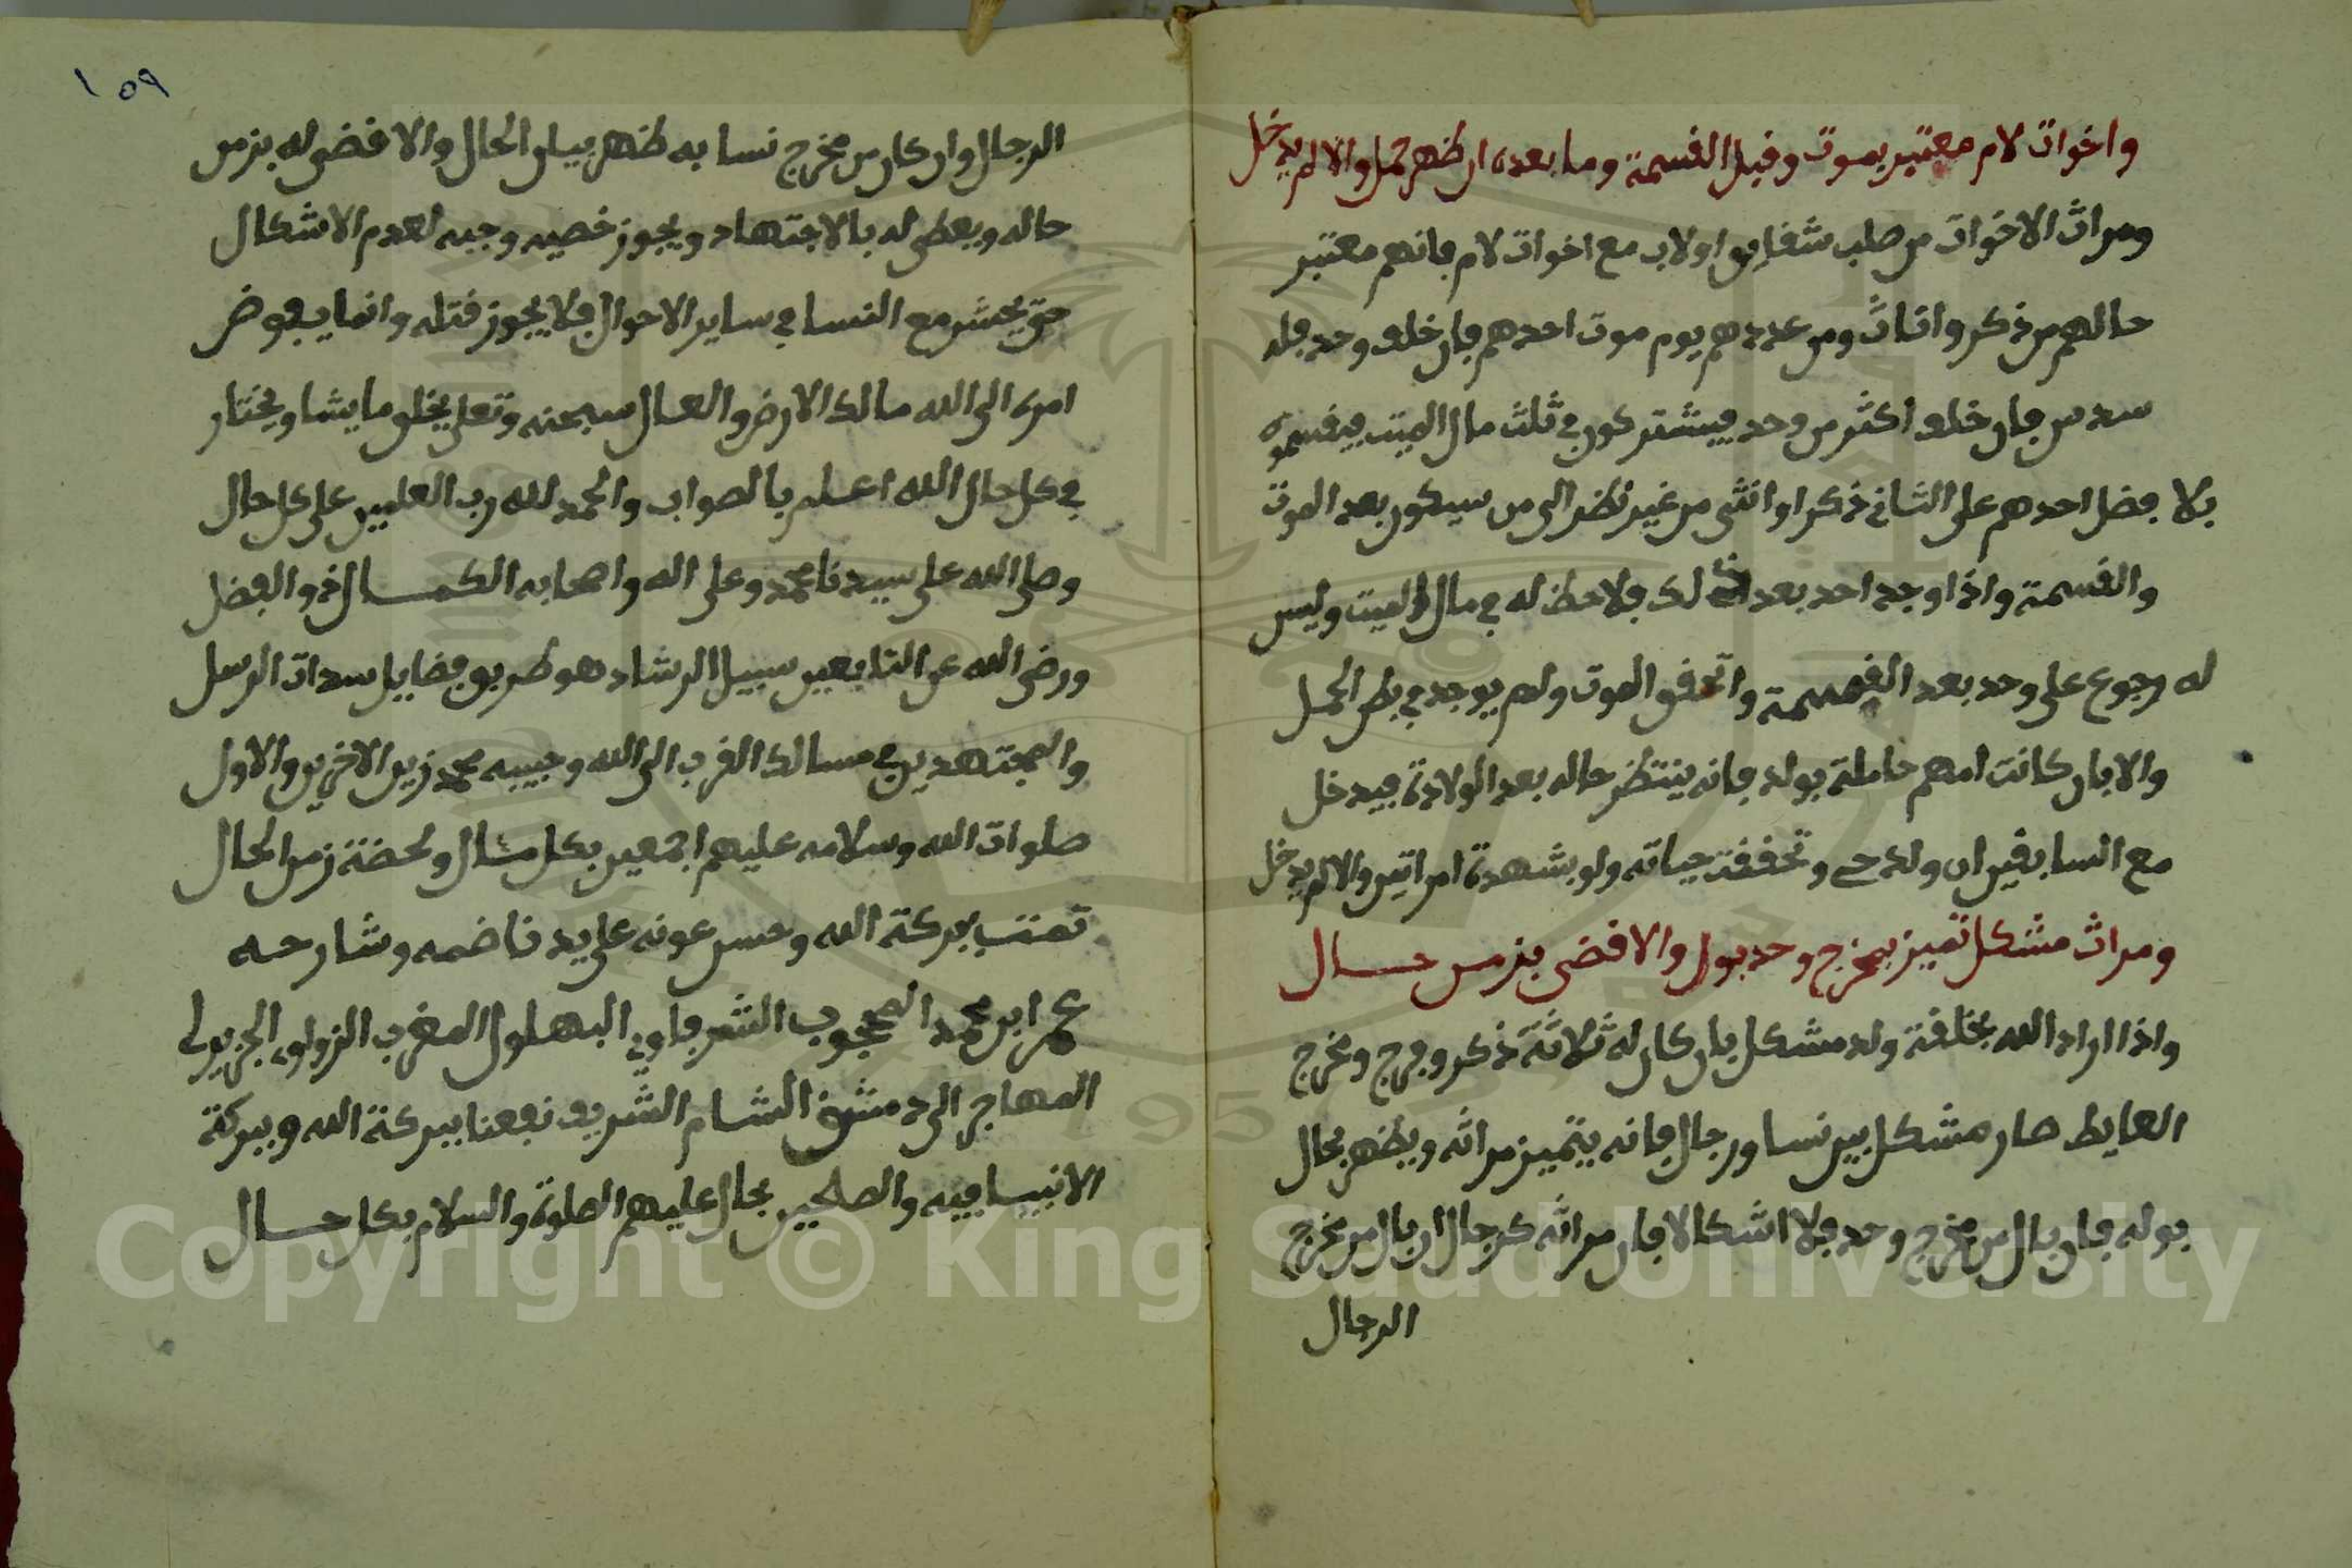 واخوات لام معتبر بموت وقبل القسمة وما بعده ان ظهر حمل والا لم يدخل
ومراث الاخوات من صلب شقايق او لاب مع اخوات لام فانهم معتبر
حالهم من ذكر واناث ومن عددهم يوم موت احدهم فان خلف وحد فله
سدس فان خلف اكثر من وحد فيشتركون في ثلث مال الميت فيقسموه
بلا فضل احدهم على الثاني ذكرا او انثى من غير نظر الى من سيكون بعد الموت
والقسمة واذا وجد احد بعد ذلك فلا حظ له في مال الميت وليس
له رجوع على وحد بعد القسمة واتفق الموت ولم يوجد في بطن الحمل
والا فان كانت امهم حاملة بولد فانه ينتظر حاله بعد الولادة فيدخل
مع السابقين ان ولد حي وتحققت حياته ولو بشهدة امراتين والا لم يدخل
ومراث مشكل تميز بمخرج وحد بول والا قضى بزمن حال
واذا اراد الله بخلقة ولد مشكل بان كان له ثلاثة ذكر وفرج ومخرج
الغايط صار مشكل بين نسا ورجال فانه يتميز مراثه ويظهر بحال
بوله فان بال من مخرج وحد فلا اشكالا فان مراثه كرجال ان بال من مخرج
الرجال
١٥٩
الرجال وان كان من مخرج نسا به ظهر بيان الحال والا قضى له بزمن
حاله ويعطى له بالاجتهاد ويجوز خصيه وجبه لعدم الاشكال
حتى يحشر مع النسا في ساير الاحوال فلا يجوز قتله وانما يفوض
امره الى الله مالك الارض والعال سبحنه وتعلى يخلق ما يشا ويختار
في كل حال الله اعلم بالصواب والحمد لله رب العلمين على كل حال
وصلى الله على سيدنا محمد وعلى اله واصحابه الكمال ذو الفضل
ورضى الله عن التابعين سبيل الرشاد هو طريق فضايل سدات الرسل
والمجتهدين في مسالك القرب الى الله وحبيبه محمد زين الاخرين والاول
صلوات الله وسلامه عليهم اجمعين بكل مثال ولحضة زمن الحال
تمت ببركة الله وحسن عونه على يد ناضمه وشارحه
عمر ابن محمد المحجوب الشرفاوي البهلول المغرب الزواوي الجزيولى
المهاجر الى دمشق الشام الشريف نفعنا ببركة الله وببركة
الانبيا فيه والصلحين بحال عليهم الصلوة والسلام بكل حال
Copyright © King Saud University